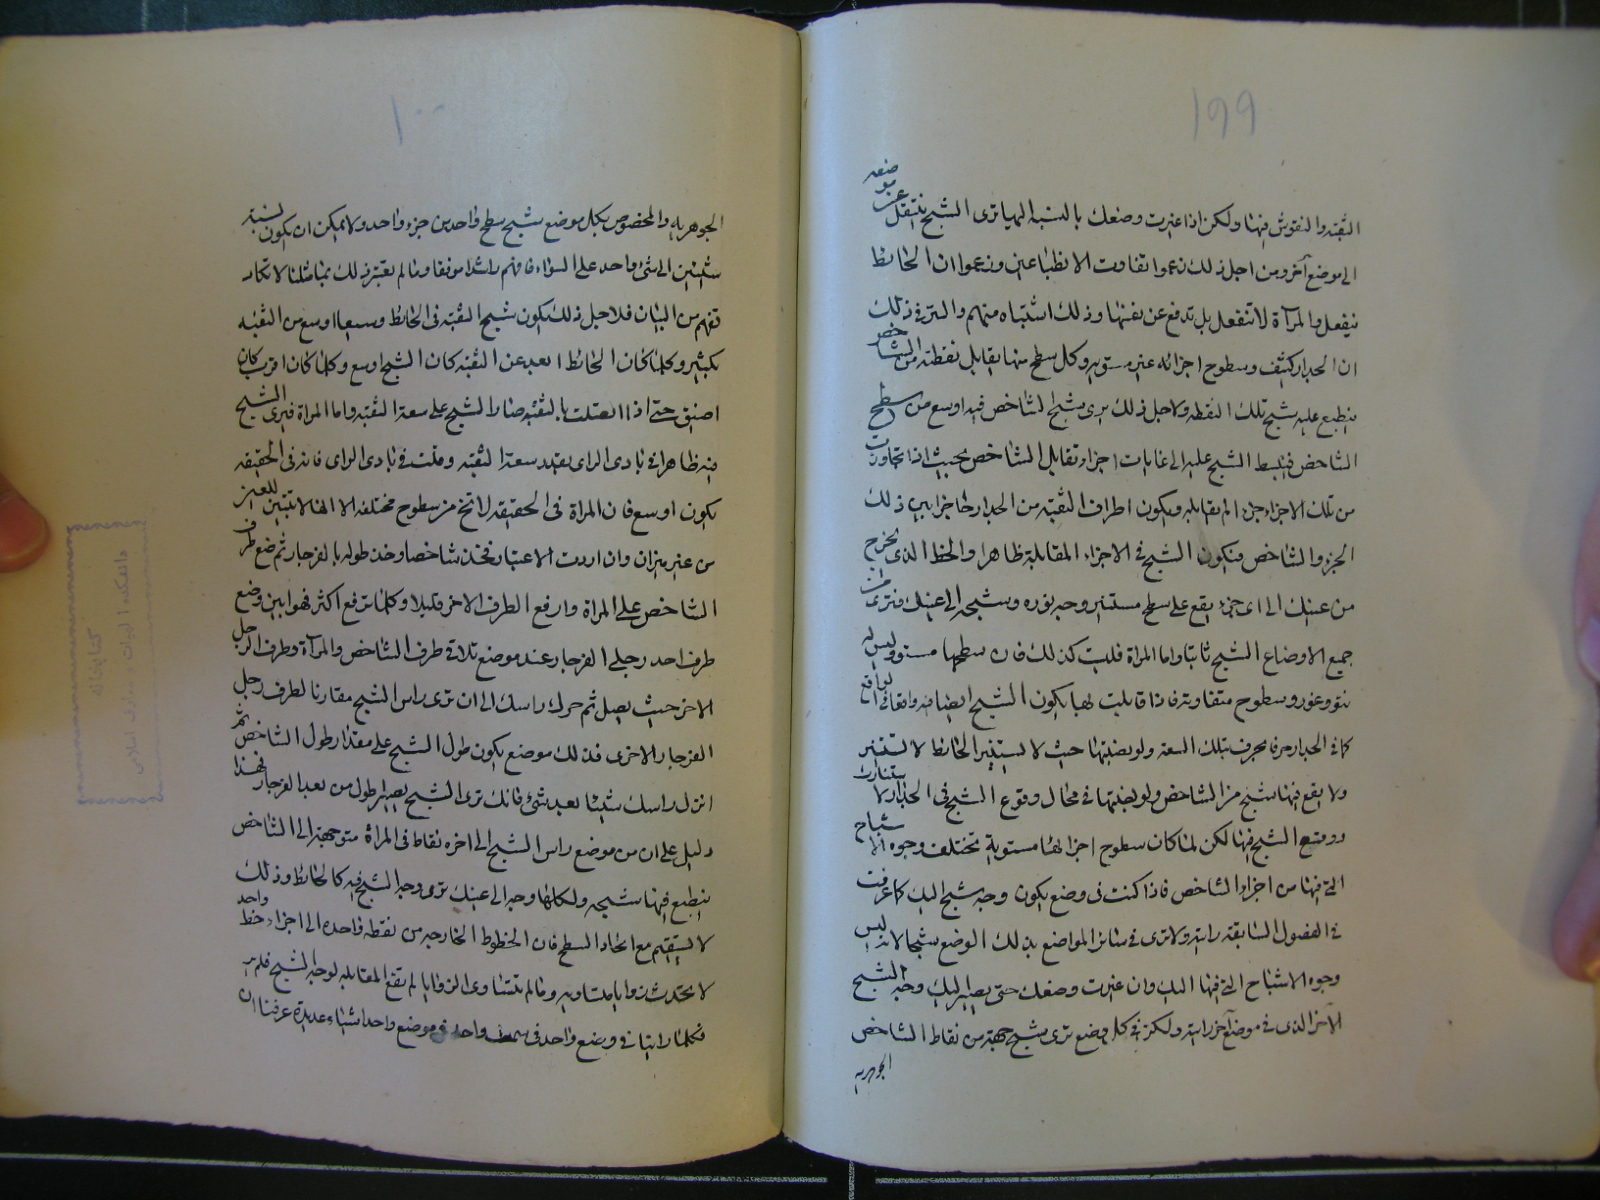 ١٩٩
الثقبة والنقوش فيها ولكن اذا غيرت وضعك بالنسبة اليها ترى الشبح ينتقل عن موضعه
الى موضع آخر ومن اجل ذلك زعموا تفاوت الانطباعين وزعموا ان الحائط
ينفعل والمرآة لا تنفعل بل تدفع عن نفسها وذلك اشتباه منهم والسر في ذلك
ان الجدار كثيف وسطوح اجزائه غير مستوية وكل سطح منها يقابل نقطة من الشاخص
ينطبع عليه شبح تلك النقطة ولاجل ذلك يرى شبح الشاخص فيه اوسع من سطح
الشاخص فينبسط الشبح عليه الى غايات اجزاء تقابل الشاخص بحيث اذا تجاوزت
من تلك الاجزاء جزء لم يقابله ويكون اطراف الثقبة من الجدار حاجزا بين ذلك
الجزء والشاخص فيكون الشبح في الاجزاء المقابلة ظاهرا والخط الذي يخرج
من عينك الى اى جزء يقع على سطح مستنير وجه نوره وشبحه الى عينك فترى من
جميع الاوضاع الشبح ثابتا واما المرآة فليست كذلك فان سطحها مستوو ليس له
نتو وغور وسطوح متفاوتة فاذا قابلت لها يكون الشبح ايضا فيه واقعا في الواقع
كما في الجدار حرفا بحرف بتلك السعة ولو بضتها حيث لا يستنير الحائط لا تستنير
ولا يقع فيها شبح من الشاخص ولو بضتها في محال وقوع الشبح في الجدار لاستنارت
ووقع الشبح فيها لكن لما كان سطوح اجزائها مستوية تختلف وجوه الاشباح
التي فيها من اجزاء الشاخص فاذا كنت في وضع يكون وجه شبح اليك كما عرفت
في الفصول السابقة رايته ولا ترى في سائر المواضع بذلك الوضع شبحا لانه ليس
وجوه الاشباح التي فيها اليك وان غيرت وضعك حتى يصير اليك وجه الشبح
الآخر الذي في موضع آخر رايته ولكن في كل وضع ترى شبح جهة من نقاط الشاخص
الجوهرية
١٠٠
الجوهرية والمخصوص بكل موضع شبح سطح واحد من جزء واحد ولا يمكن ان يكون نسبة
شيئين الى شئ واحد على السواء فافهم راشدا موفقا وما لم يعتبر ذلك بما مثلنا لا تكاد
تفهم من البيان فلاجل ذلك يكون شبح الثقبة في الحائط وسيعا اوسع من الثقبة
بكثير وكلما كان الحائط ابعد عن الثقبة كان الشبح اوسع وكلما كان اقرب كان
اضيق حتى اذا اتصلت بالثقبة صار الشبح على سعة الثقبة واما المراة فيرى الشبح
فيه ظاهرا في بادى الراى بقدر سعة الثقبة وقلت في بادى الراى فانه في الحقيقة
يكون اوسع فان المراة في الحقيقة لا تخ من سطوح مختلفة الا انها لا تتبين للعين
من غير ميزان وان اردت الاعتبار فخذ شاخصا وخذ طوله بالفرجار ثم ضع طرف
الشاخص على المراة وارفع الطرف الاخر قليلا وكلما ترفع اكثر فهو ابين وضع
طرف احد رجلي الفرجار عند موضع تلاقي طرف الشاخص والمرآة وطرف الرجل
الاخر حيث يصل ثم حرك راسك الى ان ترى راس الشبح مقارنا لطرف رجل
الفرجار الاخرى فذلك موضع يكون طول الشبح على مقدار طول الشاخص ثم
انزل راسك شيئا بعد شئ فانك ترى الشبح يصير اطول من بعد الفرجار فهذا
دليل على ان من موضع راس الشبح الى اخره نقاط في المراة متوجهة الى الشاخص
ينطبع فيها شبحه ولكلها وجه الى عينك ترى وجه الشبح فيه كالحائط وذلك
لا يستقيم مع اتحاد السطح فان الخطوط الخارجة من نقطة واحدة الى اجزاء خط واحد
لا يحدث زوايا متساوية وما لم يتساوى الزوايا لم يقع المقابلة لوجه الشبح فلم ير
فكلما راينا في وضع واحد في سمت واحد في موضع واحد اشياء عديدة عرفنا ان
كتابخانه
دانشكده الهيات و معارف اسلامى